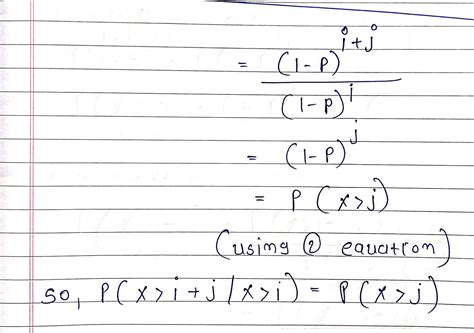 = (1-P)^{i+j} / (1-P)^i
= (1-P)^j
= P (x>j)
(using ② equation)
so, P(x>i+j/x>i) = P(x>j)